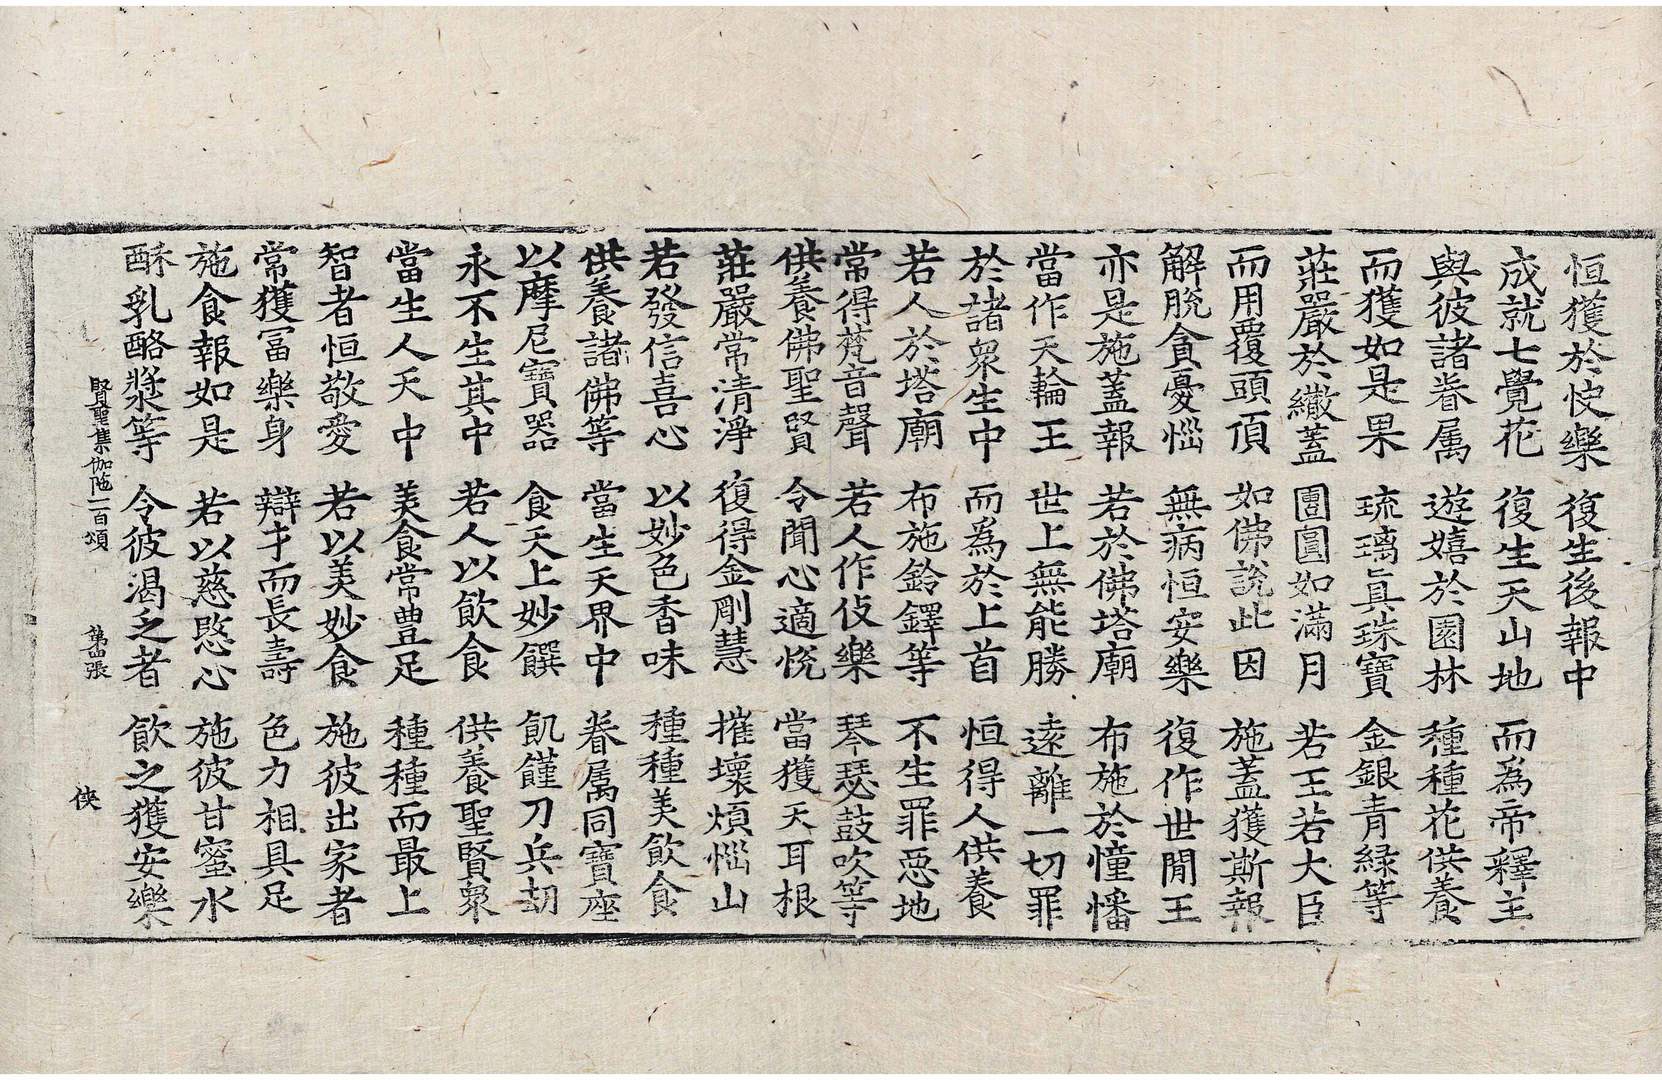 恒獲於快樂　復生後報中
成就七覺花　復生天山地　而爲帝釋主
與彼諸眷属　遊嬉於園林　種種花供養
而獲如是果　琉璃真珠寶　金銀青緑等
莊嚴於繖蓋　團圓如滿月　若王若大臣
而用覆頭頂　如佛說此因　施蓋獲斯報
解脫貪憂惱　無病恒安樂　復作世間王
亦是施蓋報　若於佛塔廟　布施於幢幡
當作天輪王　世上無能勝　遠離一切罪
於諸衆生中　而爲於上首　恒得人供養
若人於塔廟　布施鈴鐸等　不生罪惡地
常得梵音聲　若人作伎樂　琴瑟鼓吹等
供養佛聖賢　令聞心適悅　當獲天耳根
莊嚴常清淨　復得金剛慧　摧壞煩惱山
若發信喜心　以妙色香味　種種美飲食
供養諸佛等　當生天界中　眷属同寶座
以摩尼寶器　食天上妙饌　飢饉刀兵劫
永不生其中　若人以飲食　供養聖賢衆
當生人天中　美食常豊足　種種而最上
智者恒敬愛　若以美妙食　施彼出家者
常獲冨樂身　辯才而長壽　色力相具足
施食報如是　若以慈愍心　施彼甘蜜水
酥乳酪漿等　令彼渴乏者　飲之獲安樂
賢聖集伽陁一百頌　第四張　俠